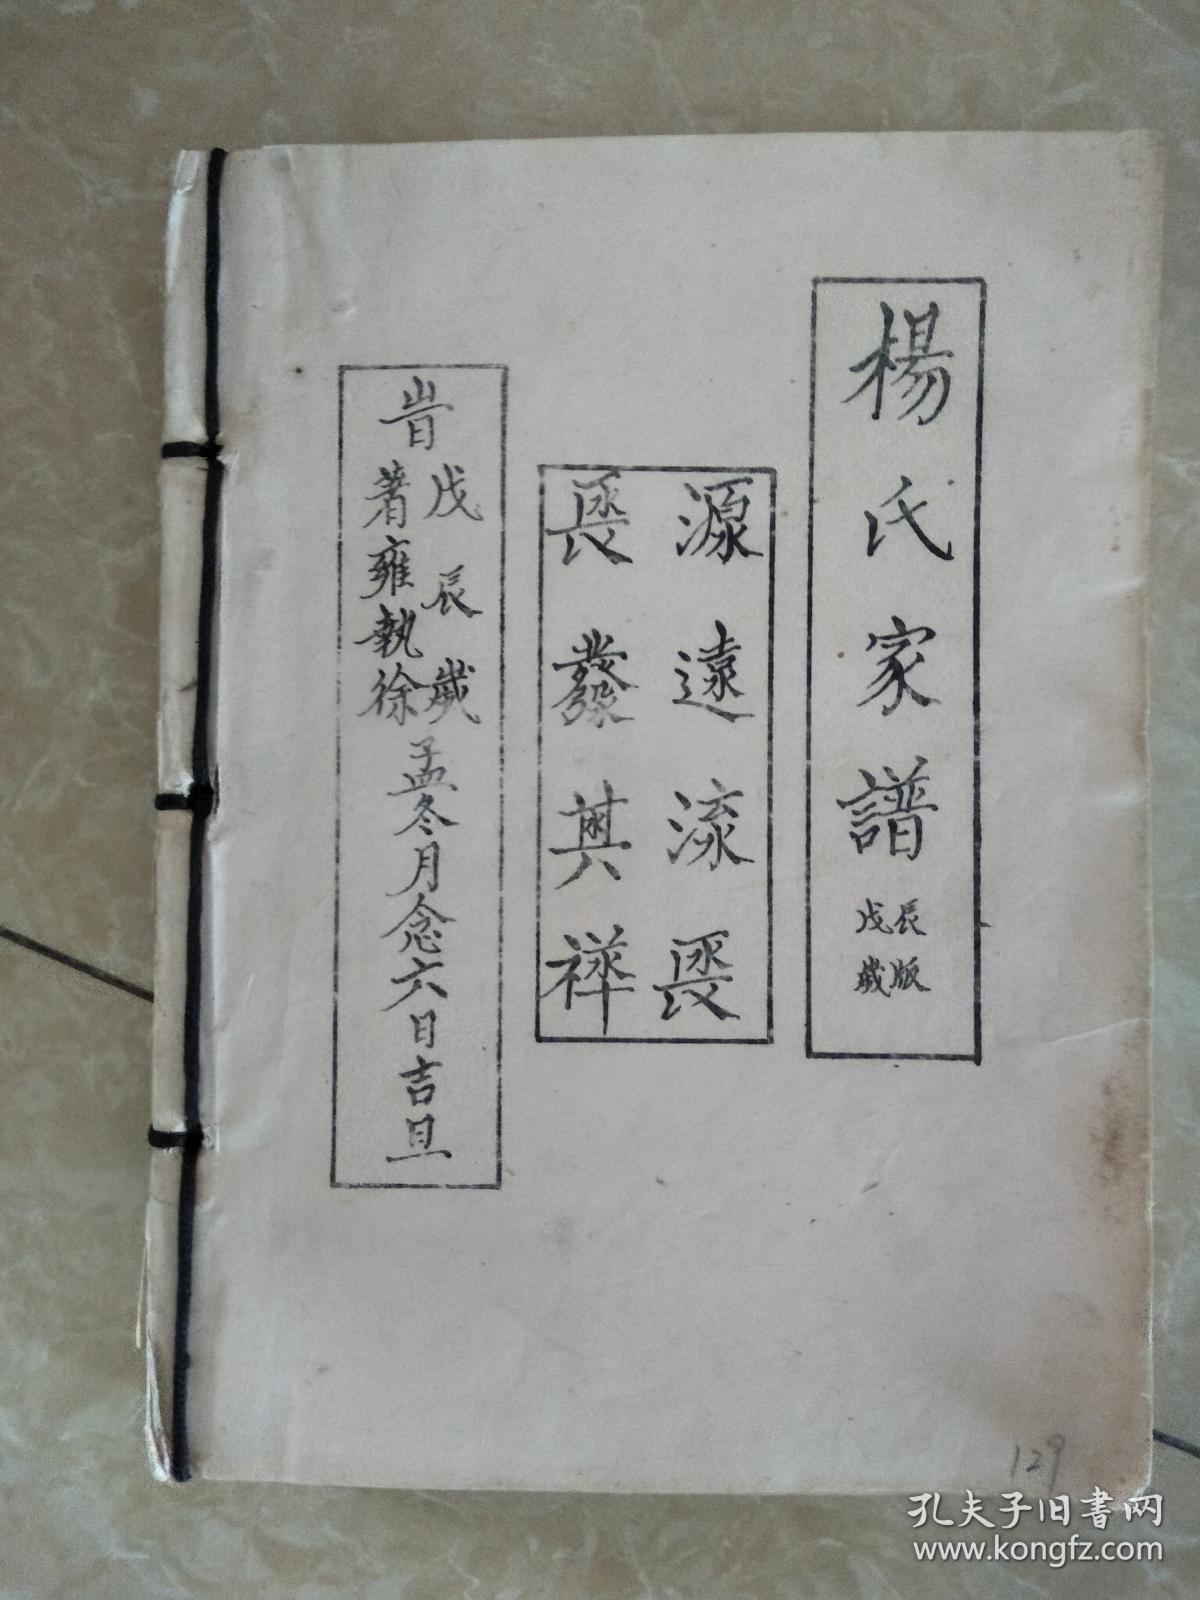 楊氏家譜
戊辰
歲版
源遠流長
長發其祥
旹
戊辰歲
著雍執徐
孟冬月念六日吉旦
129
孔夫子旧書网
www.kongfz.com